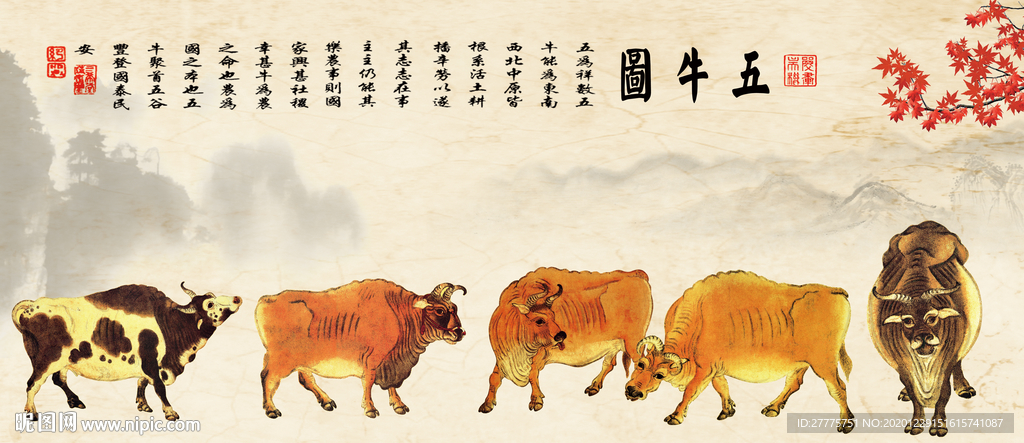 五牛圖
五為祥數五
牛能為東南
西北中原皆
根系活土耕
播辛勞以遂
其志志在事
主主仍能其
樂農事則國
家興甚社稷
幸甚牛為農
之命也農為
國之本也五
牛聚首五谷
豐登國泰民
安
昵图网 www.nipic.com
ID:27775751 NO:20201229151615741087